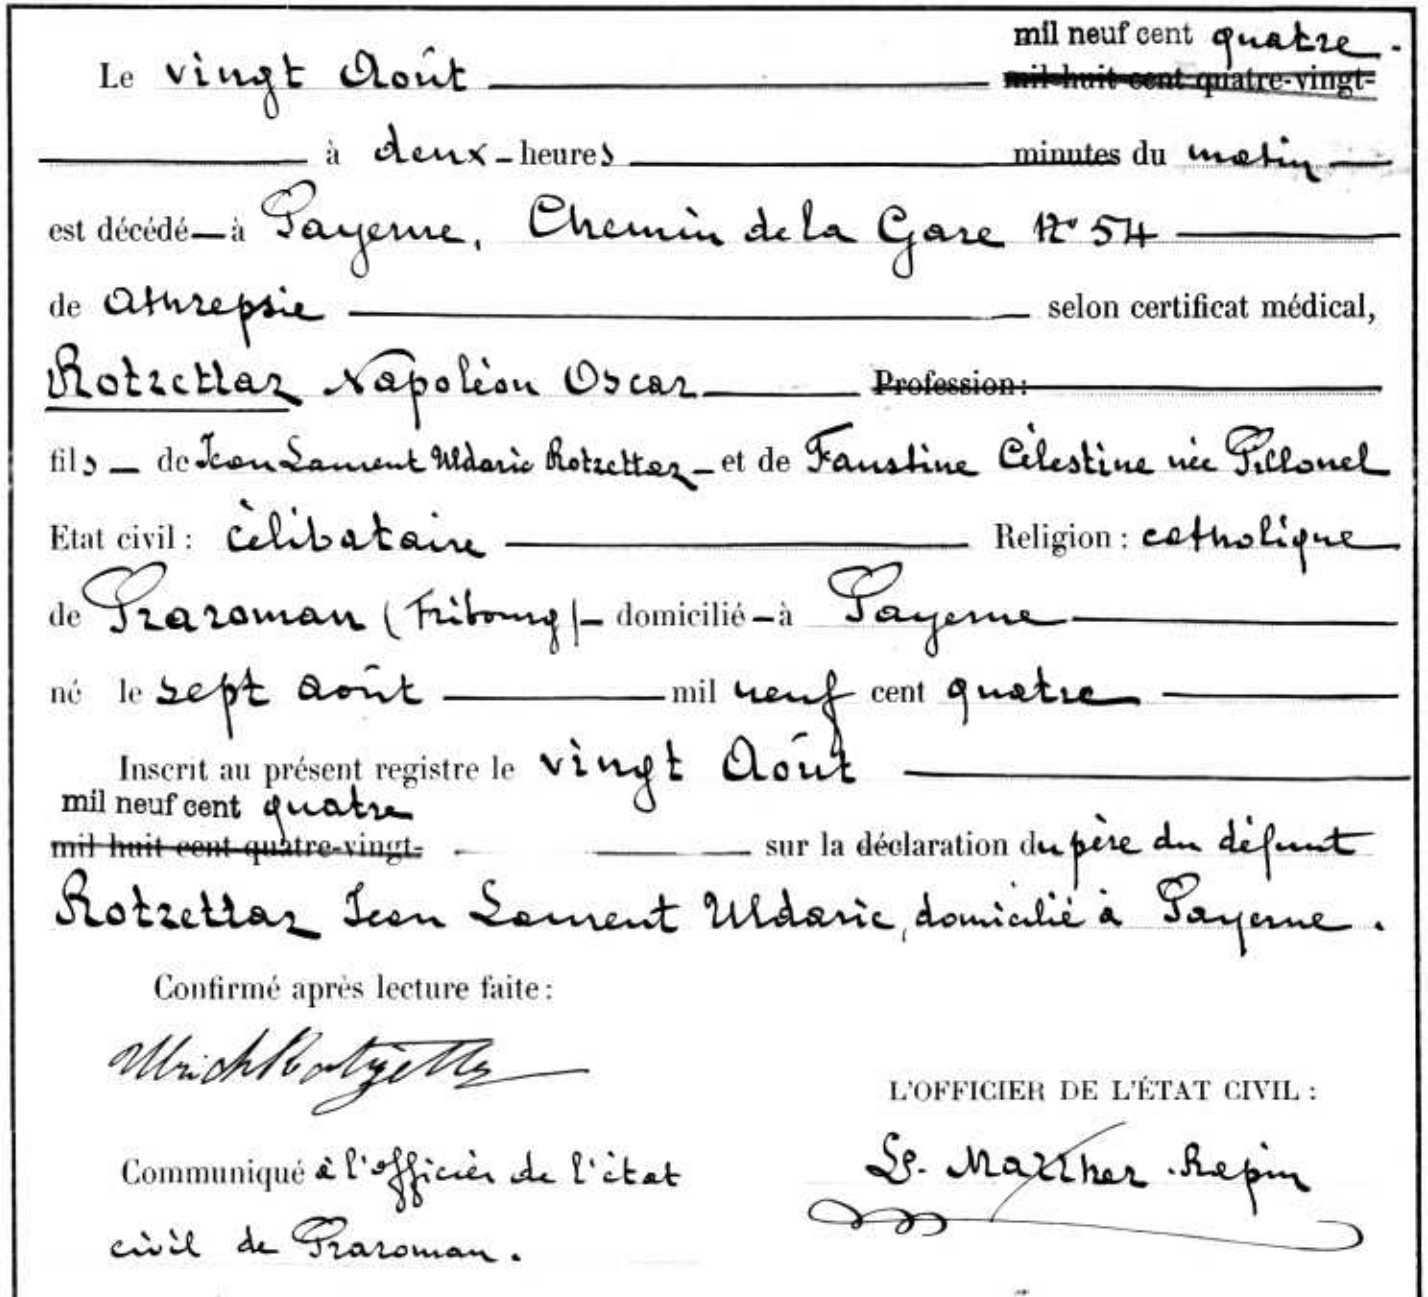 mil neuf cent quatre.
Le vingt Août mil huit cent quatre-vingt-
à deux heures minutes du matin
est décédé à Payerne, Chemin de la Gare N° 54
de Athrepsie selon certificat médical,
Rotzettaz Napoléon Oscar Profession:
fils de Jean Laurent Uldaric Rotzettaz et de Faustine Célestine née Pillonel
Etat civil : célibataire Religion : catholique
de Praroman (Fribourg) domicilié à Payerne
né le sept août mil neuf cent quatre
Inscrit au présent registre le vingt Août
mil neuf cent quatre
mil huit cent quatre-vingt- sur la déclaration du père du défunt
Rotzettaz Jean Laurent Uldaric, domicilié à Payerne.
Confirmé après lecture faite :
Ulrich Rotzetta
L'OFFICIER DE L'ÉTAT CIVIL :
Communiqué à l'officier de l'état
civil de Praroman.